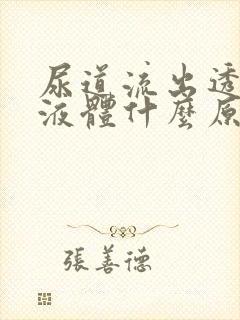 尿道流出透
液體什麼原
張善德